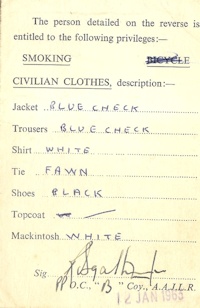 The person detailed on the reverse is
entitled to the following privileges:—
SMOKING BICYCLE
CIVILIAN CLOTHES, description:—
Jacket BLUE CHECK
Trousers BLUE CHECK
Shirt WHITE
Tie FAWN
Shoes BLACK
Topcoat
Mackintosh WHITE
Sig.
PP O.C., "B" Coy., A.A.J.L.R.
12 JAN 1963